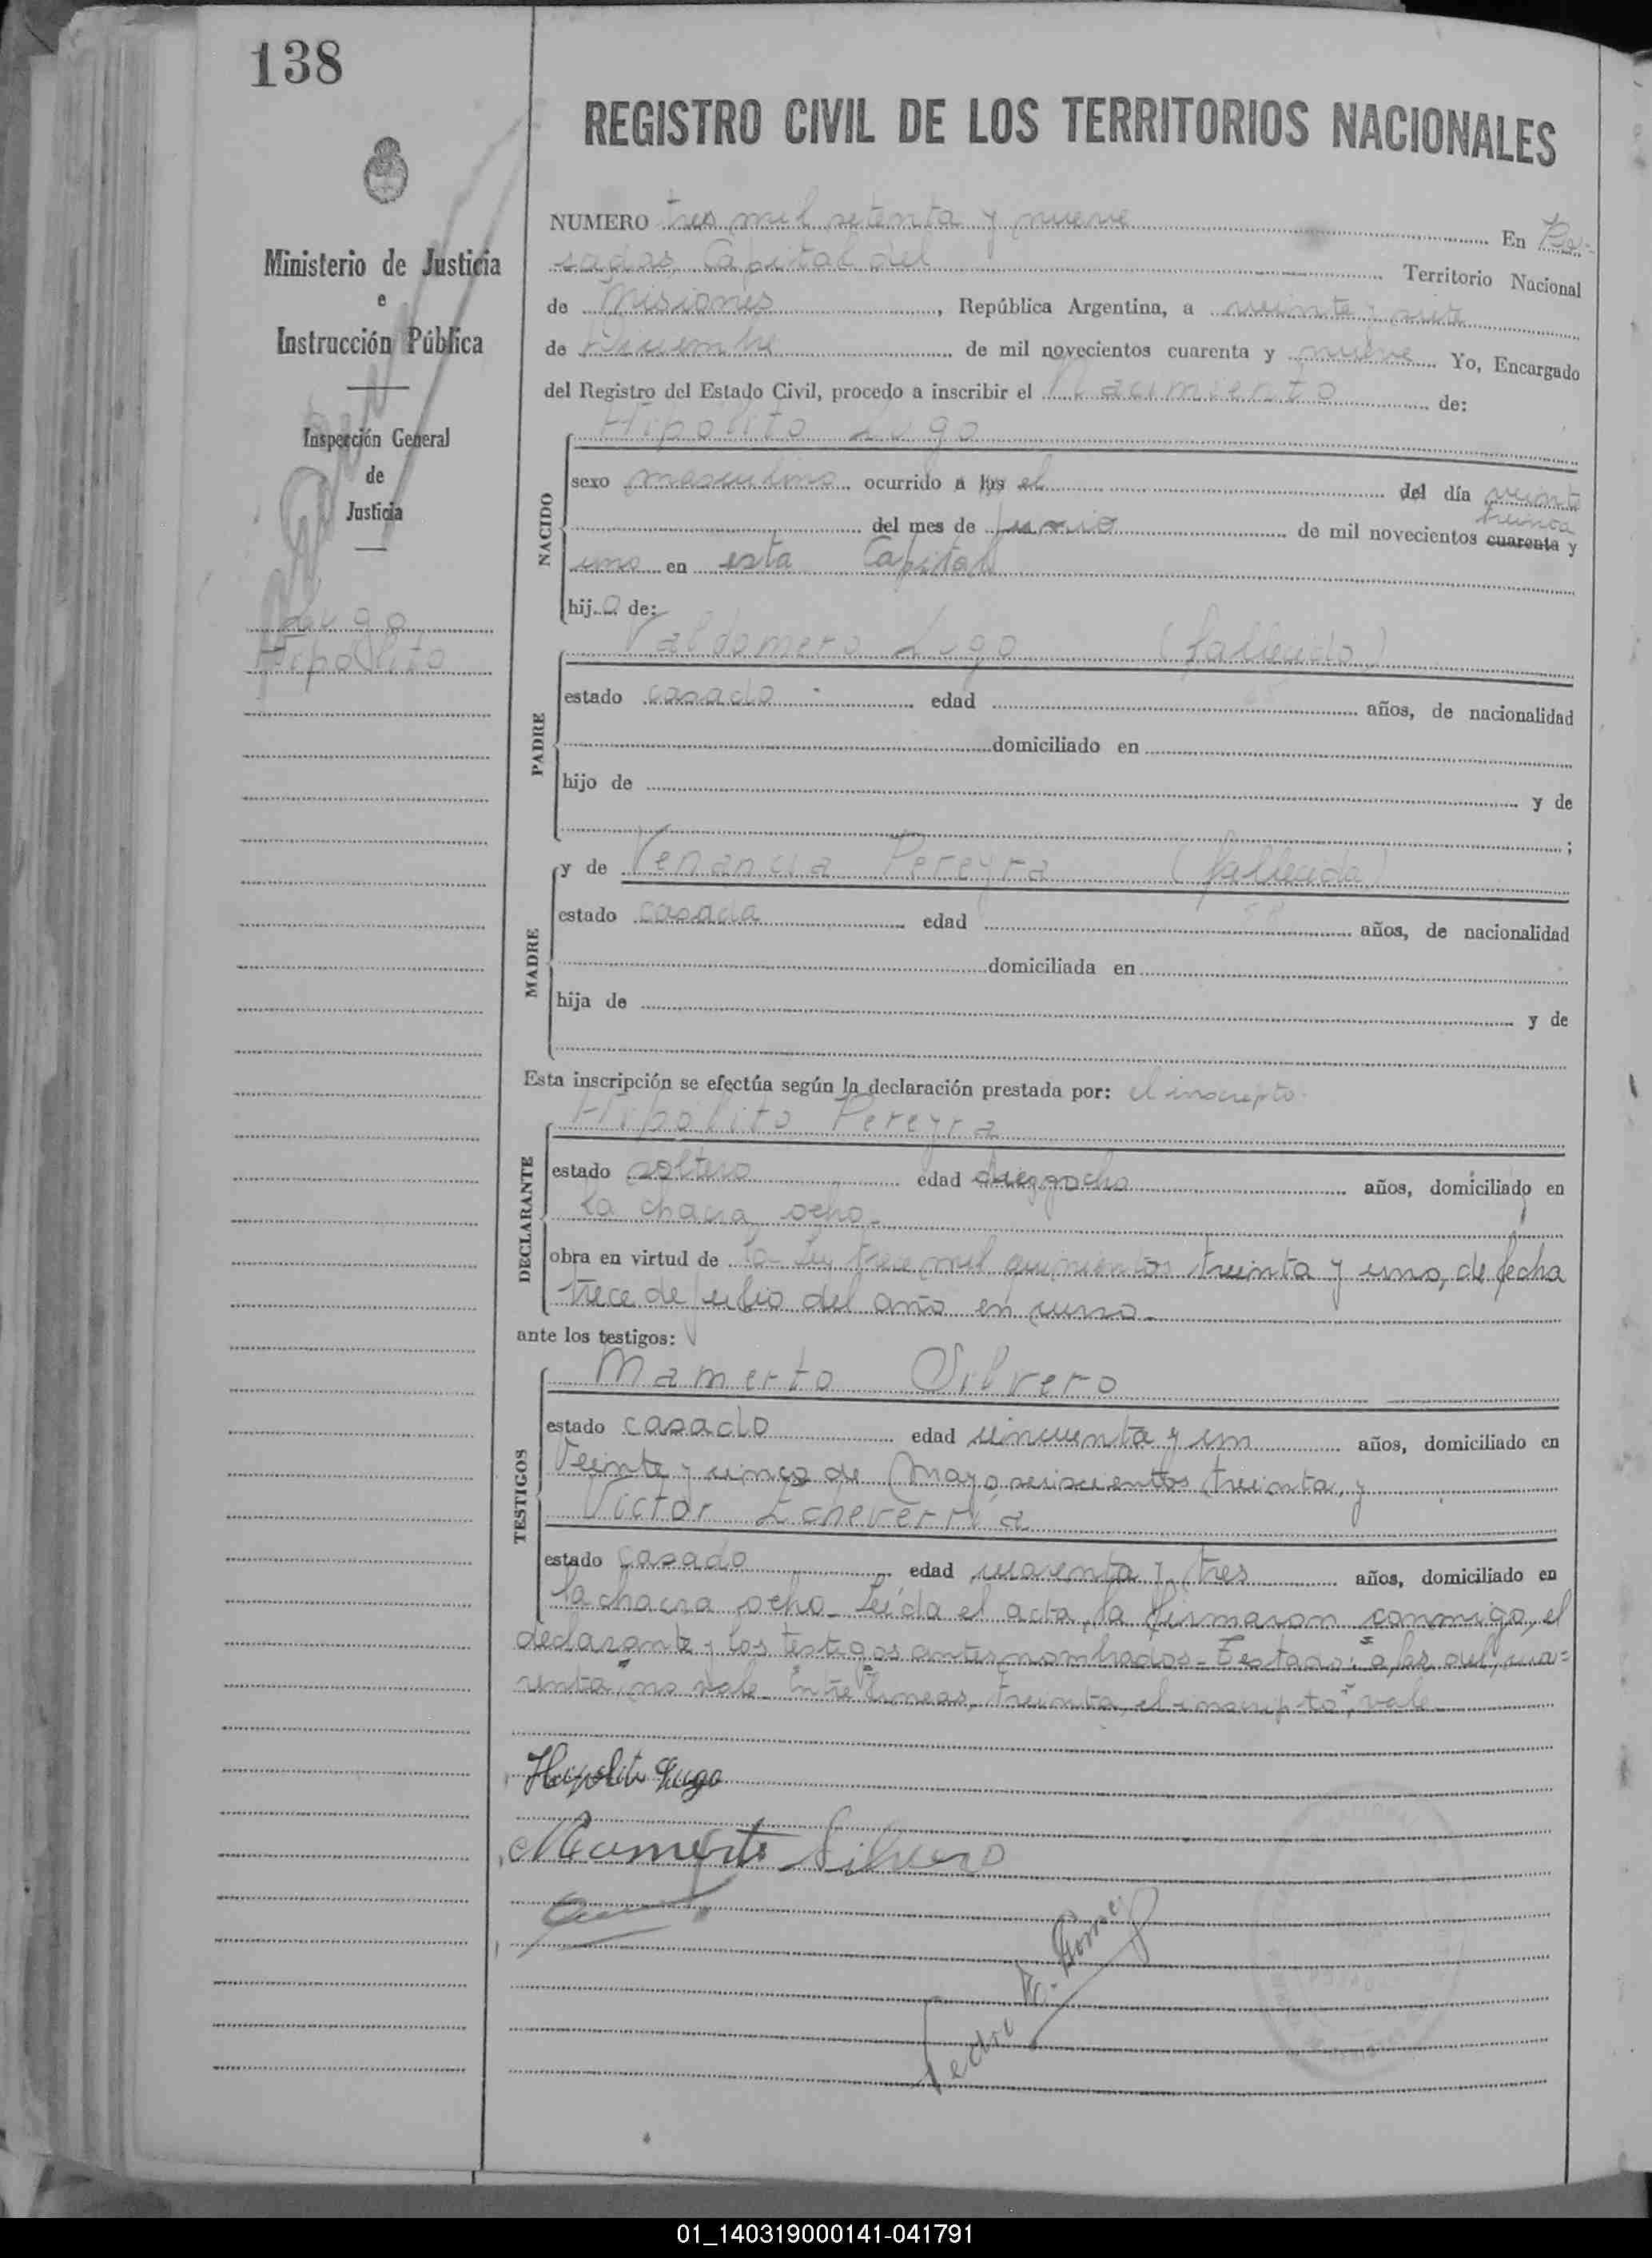 138
REGISTRO CIVIL DE LOS TERRITORIOS NACIONALES
Ministerio de Justicia
e
Instrucción Pública
Inspección General
de
Justicia
Lugo
Hipolito
NUMERO tres mil setenta y nueve En Po-
sadas, Capital del Territorio Nacional
de Misiones, República Argentina, a veinte y siete
de Diciembre de mil novecientos cuarenta y nueve Yo, Encargado
del Registro del Estado Civil, procedo a inscribir el Nacimiento de:
Hipólito Lugo
NACIDO
sexo masculino ocurrido a las el del día veinte
treinta
del mes de junio de mil novecientos cuarenta y
uno en esta Capital
hijo de:
Valdomero Lugo (fallecido)
PADRE
estado casado edad años, de nacionalidad
domiciliado en
hijo de y de
;
y de Venancia Pereyra (fallecida)
MADRE
estado casada edad años, de nacionalidad
domiciliada en
hija de y de
Esta inscripción se efectúa según la declaración prestada por: el inscripto.
Hipólito Pereyra
DECLARANTE
estado soltero edad diezyocho años, domiciliado en
la chacra ocho-
obra en virtud de la Ley trece mil quinientos treinta y uno, de fecha
trece de julio del año en curso-
ante los testigos:
Mamerto Silvero
TESTIGOS
estado casado edad cincuenta y un años, domiciliado en
Veinte y cinco de Mayo seiscientos treinta, y
Victor Echeverría
estado casado edad cuarenta y tres años, domiciliado en
la chacra ocho- Leída el acta, la firmaron conmigo, el
declarante y los testigos antes nombrados- Testado: "a las, del, cua=
renta" no vale- Entre líneas, "treinta, el inscripto", vale-
Hipolito Lugo
Mamerto Silvero
01_140319000141-041791